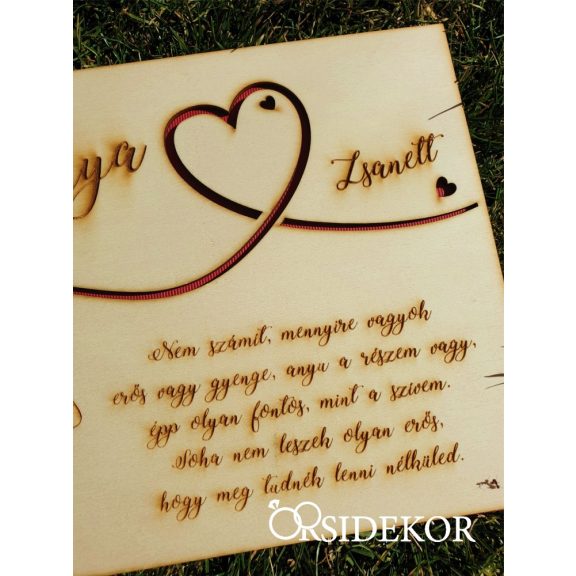 Zsanett
Nem számít, mennyire vagyok
erős vagy gyenge, anyu a részem vagy,
épp olyan fontos, mint a szívem.
Soha nem leszek olyan erős,
hogy meg tudnék lenni nélküled.
ORSIDEKOR